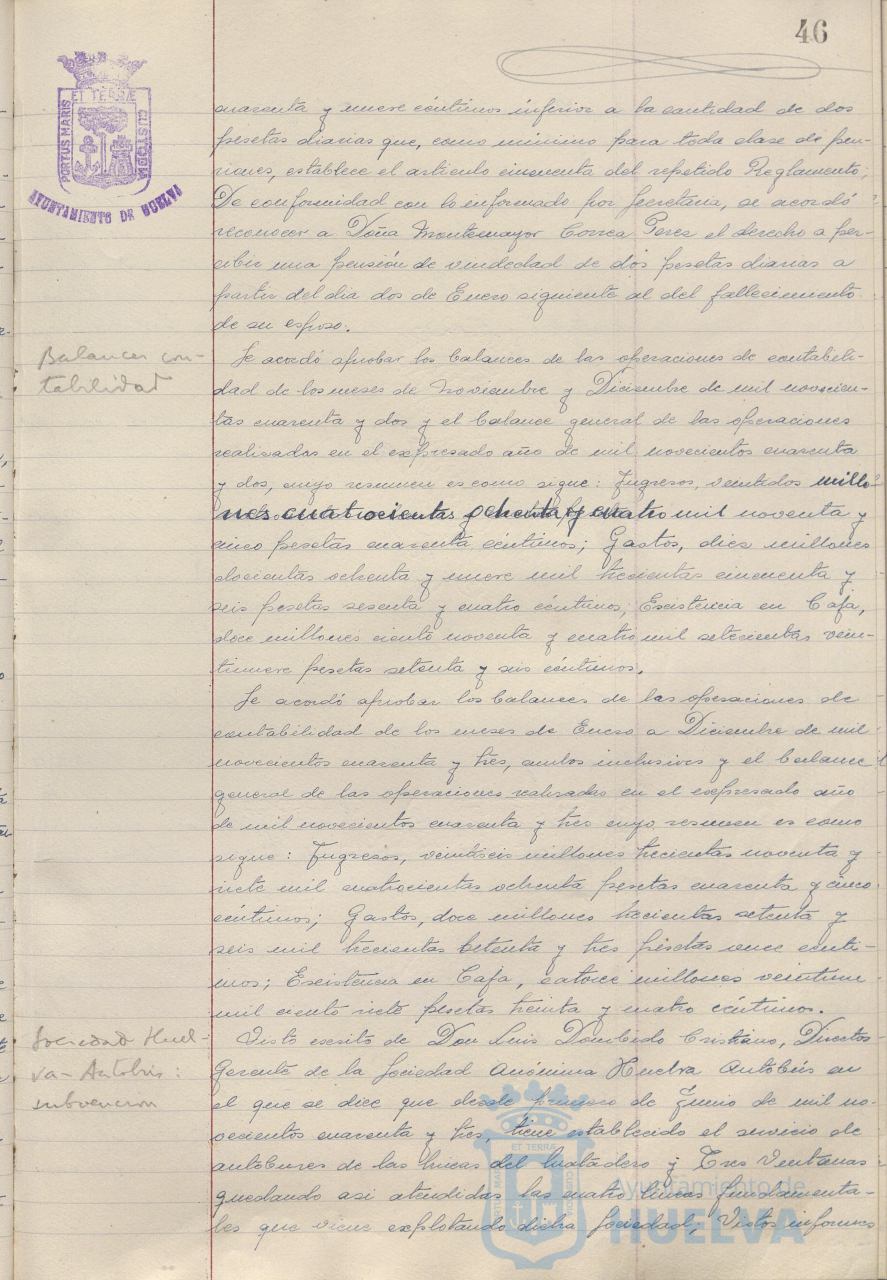 46
PORTUS MARIS
ET TERRÆ
CUSTODIA
AYUNTAMIENTO DE HUELVA
cuarenta y nueve céntimos inferior a la cantidad de dos
pesetas diarias que, como mínimo para toda clase de pen-
siones, establece el artículo cincuenta del repetido Reglamento;
De conformidad con lo informado por Secretaria, se acordó
reconocer a Doña Montemayor Correa Perez el derecho a per-
cibir una pensión de viudedad de dos pesetas diarias a
partir del dia dos de Enero siguiente al del fallecimiento
de su esposo.
Balances con-
tabilidad
Se acordó aprobar los balances de las operaciones de contabili-
dad de los meses de Noviembre y Diciembre de mil novecien-
tos cuarenta y dos y el balance general de las operaciones
realizadas en el expresado año de mil novecientos cuarenta
y dos, cuyo resumen es como sigue: Ingresos, veintidos millo-
nes cuatrocientas ochenta y cuatro mil noventa y
cinco pesetas cuarenta céntimos; Gastos, diez millones
doscientas ochenta y nueve mil trecientas cincuenta y
seis pesetas sesenta y cuatro céntimos; Escistencia en Caja,
doce millones ciento noventa y cuatro mil setecientas vein-
tinueve pesetas setenta y seis céntimos.
Se acordó aprobar los balances de las operaciones de
contabilidad de los meses de Enero a Diciembre de mil
novecientos cuarenta y tres, ambos inclusives y el balance
general de las operaciones realizadas en el expresado año
de mil novecientos cuarenta y tres cuyo resumen es como
sigue: Ingresos, veintiseis millones trecientas noventa y
siete mil cuatrocientas ochenta pesetas cuarenta y cinco
céntimos; Gastos, doce millones trecientas setenta y
seis mil trecientas setenta y tres pesetas once cénti-
mos; Escistencia en Caja, catorce millones veintiun
mil ciento siete pesetas treinta y cuatro céntimos.
Sociedad Huel-
va-Autobús:
subvencion
Visto escrito de Don Luis Dombido Cristiano, Director
Gerente de la Sociedad Anónima Huelva Autobús en
el que se dice que desde primero de Junio de mil no-
vecientos cuarenta y tres, tiene establecido el servicio de
autobuses de las lineas del Matadero y Tres Ventanas
quedando asi atendidas las cuatro lineas fundamenta-
les que viene explotando dicha Sociedad; Vistos informes
ET TERRÆ
Ayuntamiento de
HUELVA